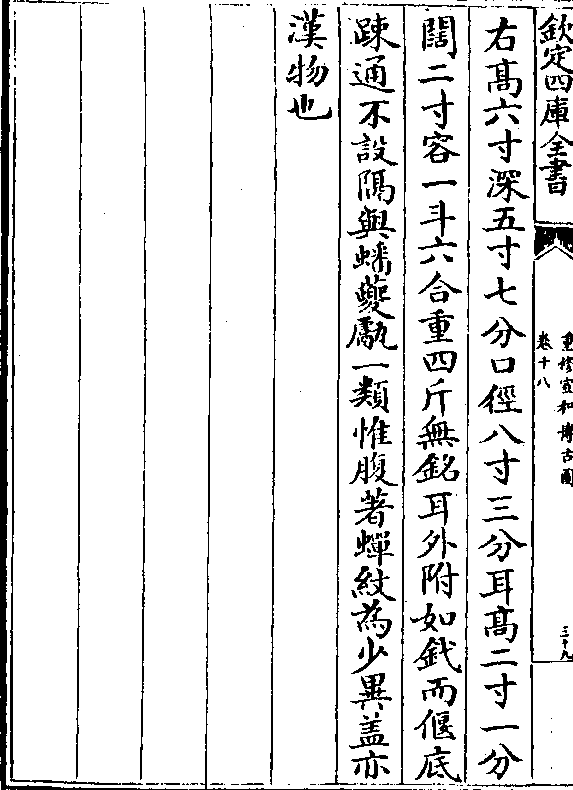 欽定四庫全書
重修宣和博古圖
卷十八
三十九
右髙六寸深五寸七分口徑八寸三分耳髙二寸一分
闊二寸容一斗六合重四斤無銘耳外附如釴而偃底
踈通不設隔與蟠夔甗一類惟腹著蟬紋為少異盖亦
漢物也